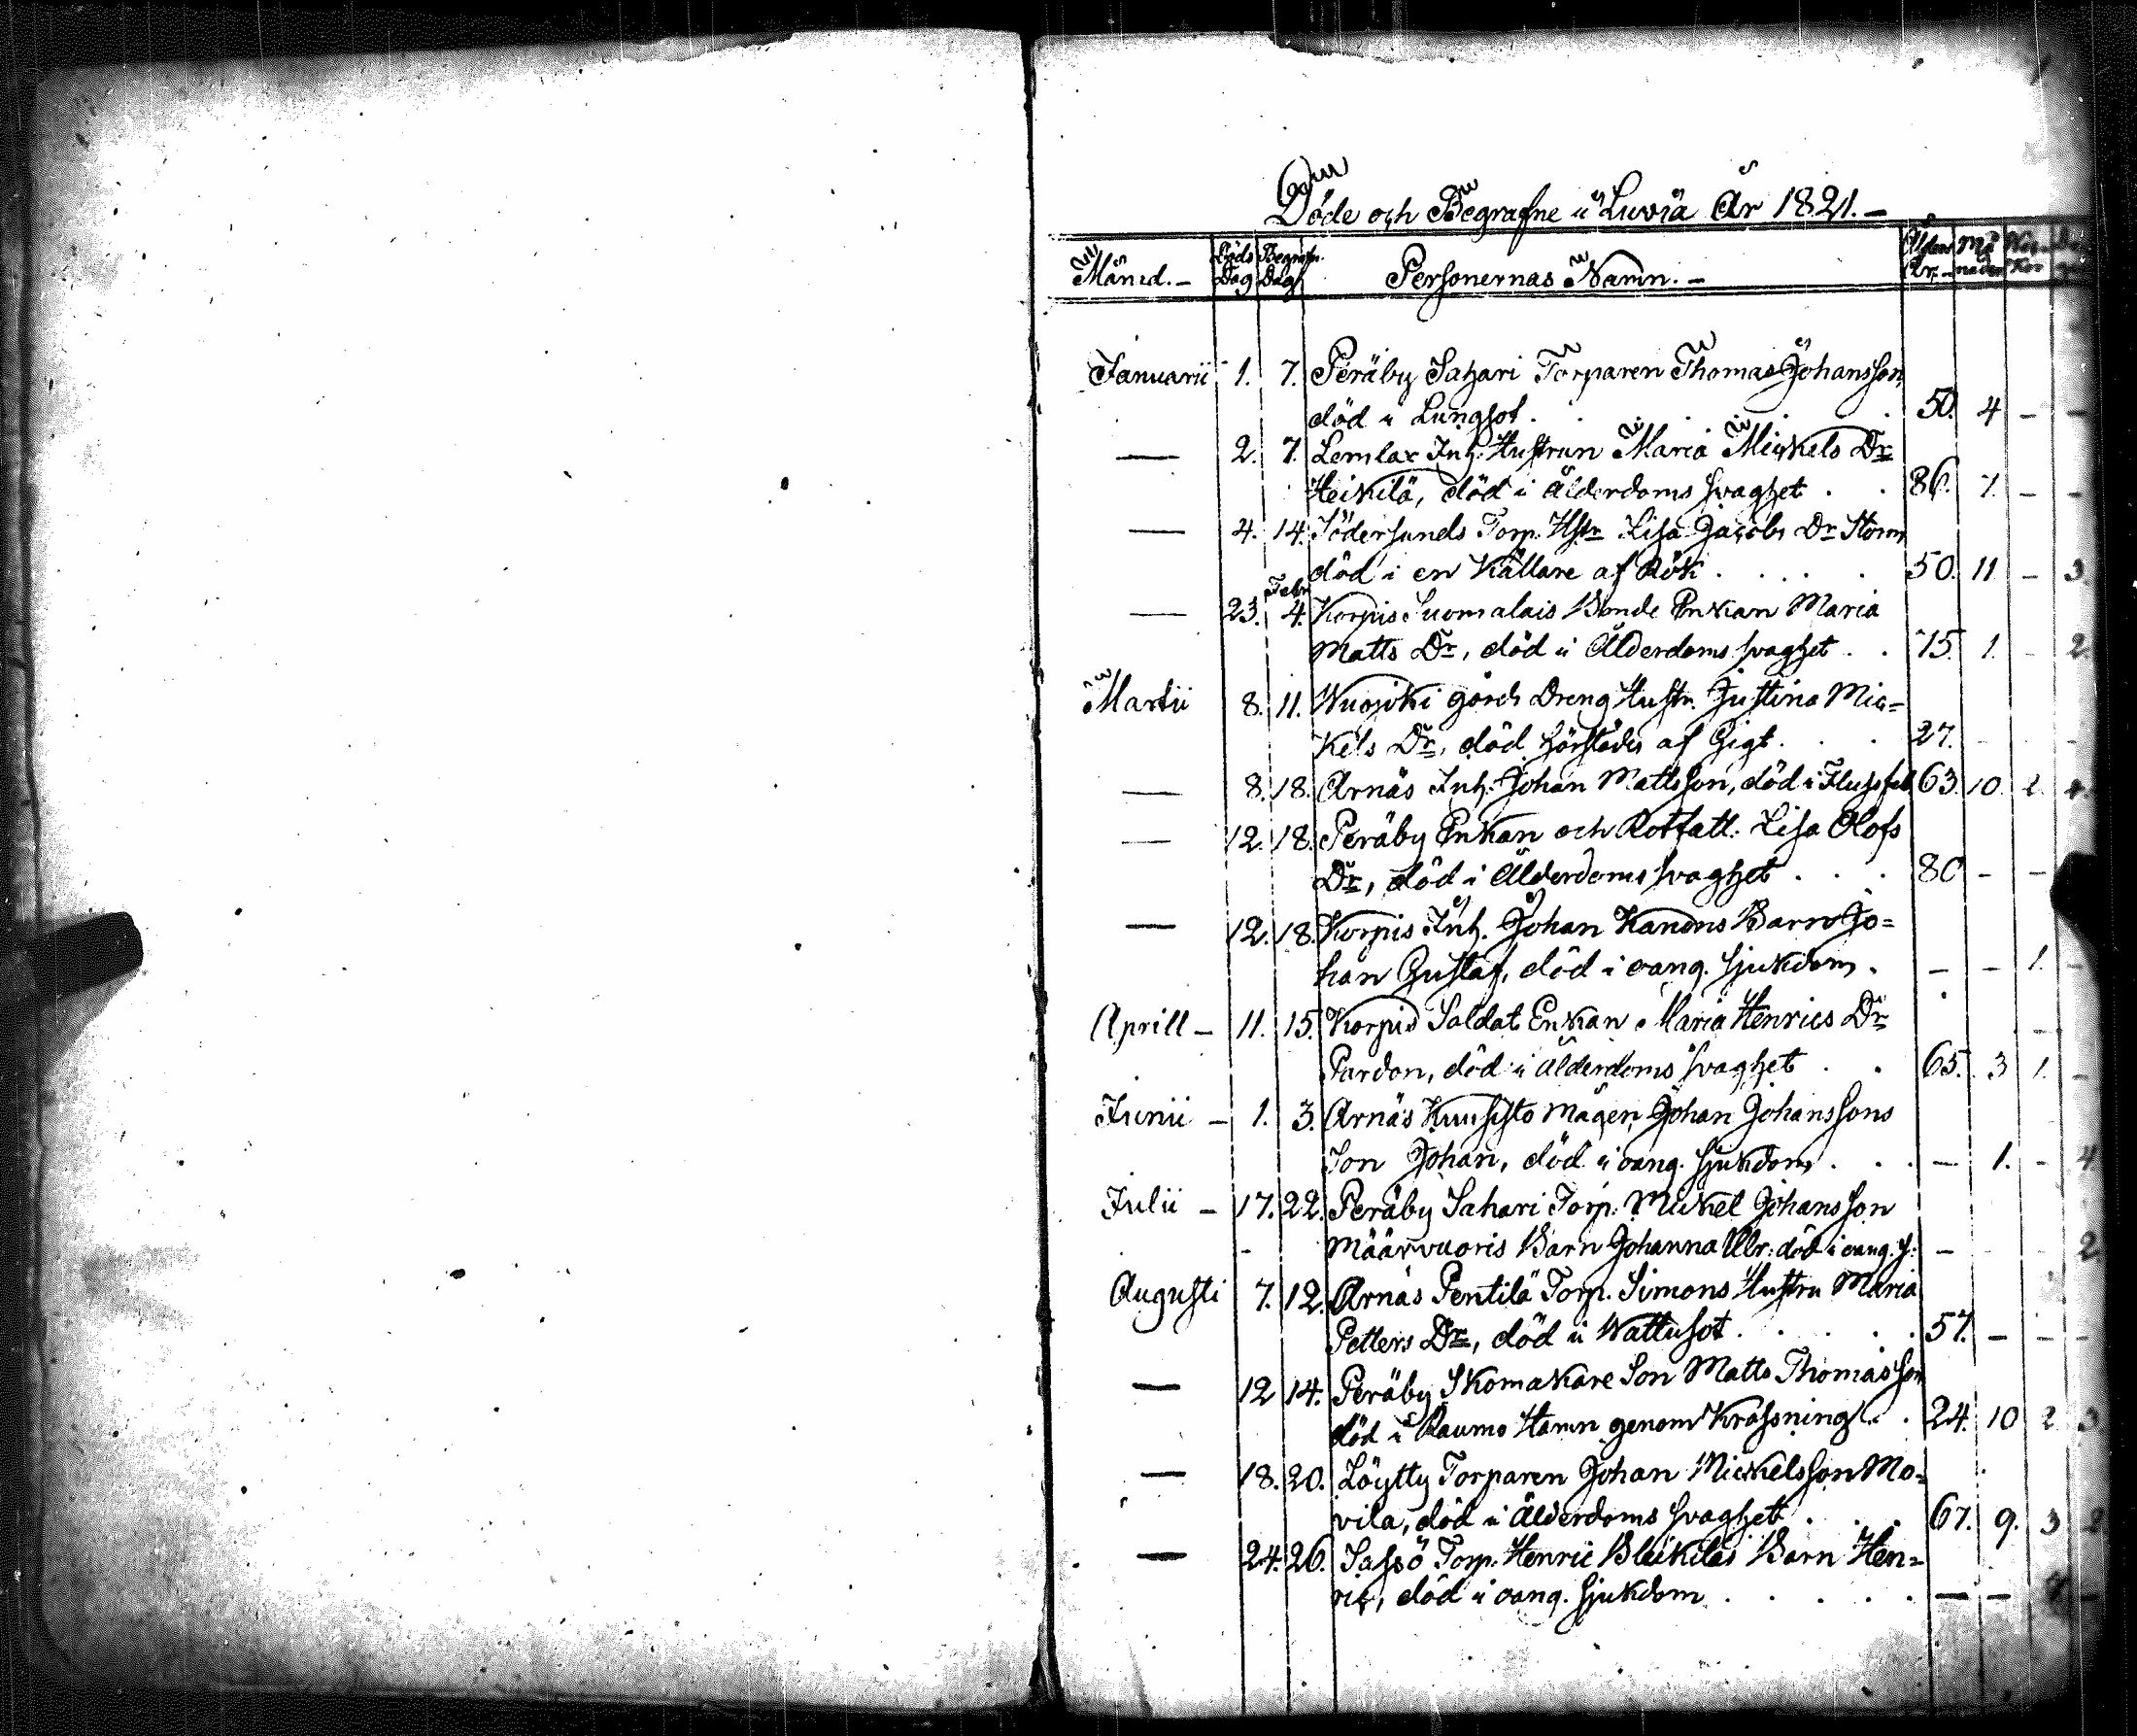 Döde och Begrafne i Luvia År 1821.-
Månad.- Döds Dag Begrafn. Dag Personernas Namn.- Ålder År.- Månader Wec-kor
Januarii 1. 7. Peräby Sahari Torparen Thomas Johansson
död i Lungsot . . . . . 50. 4 - -
— 2. 7. Lemlax Inh. Hustrun Maria Mickels Dr
Heikilä, död i Ålderdoms svaghet . . 86. 7. - -
— 4. 14. Södersunds Torp. Hstr Lisa Jacobs Dr Storm
död i en Källare af Rök . . . . 50. 11 - 3
— 23. Febr 4. Korpis Suomalais Bonde Enkan Maria
Matts Dr, död i Ålderdoms svaghet . . 75. 1. - 2.
Martii 8. 11. Wuojoki gårds Dreng Hustr. Justina Mic-
kels Dr, död af Gigt. . . 27. - - -
8. 18. Arnäs Inh. Johan Mattsson, död i Flussfeb 63. 10. 2. 4.
— 12. 18. Peräby Enkan och Rotfatt. Lisa Olofs
Dr, död i Ålderdoms svaghet . . . 80 - -
— 12. 18. Korpis Inh. Johan Kanons Barn Jo-
han Gustaf, död i oang. sjukdom . - - 1. -
Aprill - 11. 15. Korpis Soldat Enkan Maria Henrics Dr
Pardon, död i Ålderdoms svaghet . . 65. 3 1. -
Junii - 1. 3. Arnäs Kuusisto Mågen Johan Johanssons
Son Johan, död i oang. sjukdom . . . - 1. - 4
Julii - 17. 22. Peräby Sahari Torp. Mickel Johansson
Määrvuoris Barn Johanna Ulr: död i oang. s: - - - 2
Augusti 7. 12. Arnäs Pentilä Torp. Simons Hustru Maria
Petters Dr, död i Wattusot . . . . . 57. - - -
— 12 14. Peräby Skomakare Son Matts Thomasson
död i Raumo Hamn genom Krossning . . 24. 10 2 3
— 18. 20. Löytty Torparen Johan Mickelsson Mo-
vila, död i Ålderdoms svaghet . . . 67. 9. 3 2
— 24. 26. Sassö Torp. Henric Bleikiläs Barn Hen-
ric, död i oang. sjukdom . . . . . - - -